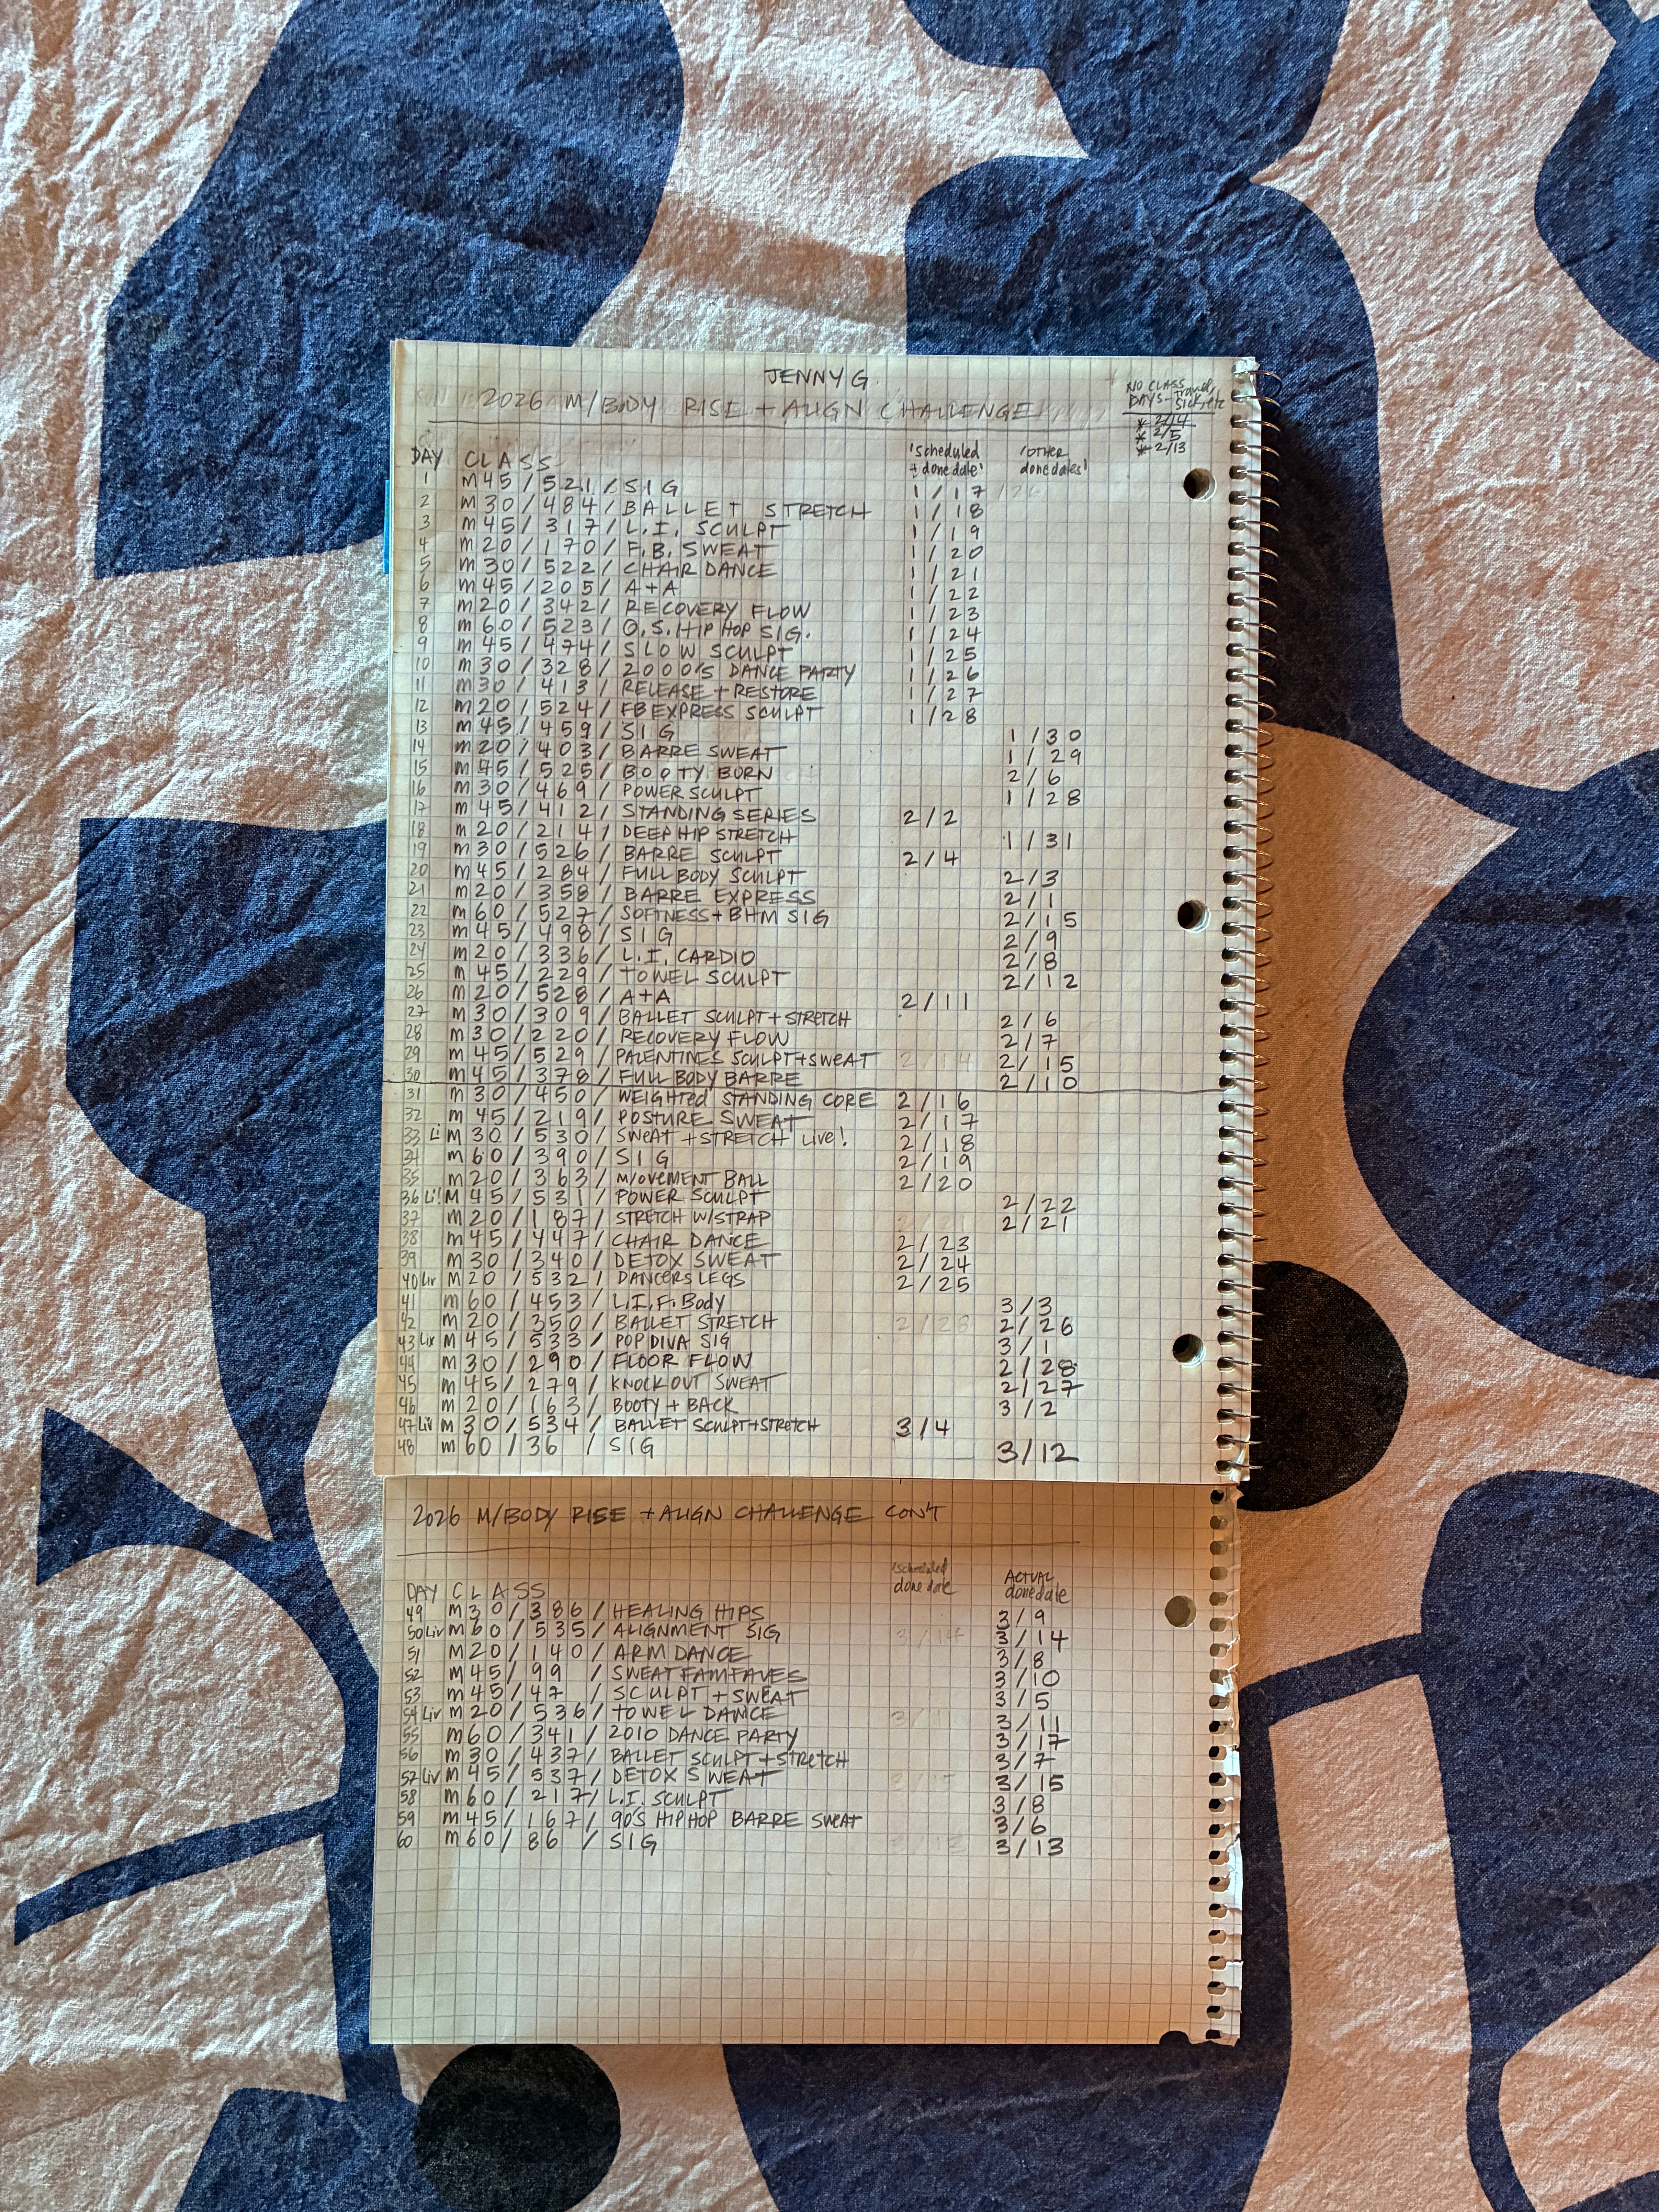 JENNY G.
2026 M/BODY RISE + ALIGN CHALLENGE
NO CLASS
DAYS - travel,
sick, etc
* 2/14
* 2/5
* 2/13
DAY CLASS 'scheduled + done date' 'OTHER done dates'
1 M45/521/SIG 1/17
2 M30/484/BALLET STRETCH 1/18
3 M45/317/L.I. SCULPT 1/19
4 M20/170/F.B. SWEAT 1/20
5 M30/522/CHAIR DANCE 1/21
6 M45/205/A+A 1/22
7 M20/342/RECOVERY FLOW 1/23
8 M60/523/O.S. HIP HOP SIG. 1/24
9 M45/474/SLOW SCULPT 1/25
10 M30/328/2000'S DANCE PARTY 1/26
11 M30/413/RELEASE + RESTORE 1/27
12 M20/524/FB EXPRESS SCULPT 1/28
13 M45/459/SIG 1/30
14 M20/403/BARRE SWEAT 1/29
15 M45/525/BOOTY BURN 2/6
16 M30/469/POWER SCULPT 1/28
17 M45/412/STANDING SERIES 2/2
18 M20/214/DEEP HIP STRETCH 1/31
19 M30/526/BARRE SCULPT 2/4
20 M45/284/FULL BODY SCULPT 2/3
21 M20/358/BARRE EXPRESS 2/1
22 M60/527/SOFTNESS + BHM SIG 2/15
23 M45/498/SIG 2/9
24 M20/336/L.I. CARDIO 2/8
25 M45/229/TOWEL SCULPT 2/12
26 M20/528/A+A 2/11
27 M30/309/BALLET SCULPT + STRETCH 2/6
28 M30/220/RECOVERY FLOW 2/7
29 M45/529/PALENTINES SCULPT + SWEAT 2/14 2/15
30 M45/378/FULL BODY BARRE 2/10
31 M30/450/WEIGHTED STANDING CORE 2/16
32 M45/219/POSTURE SWEAT 2/17
33 Li M30/530/SWEAT + STRETCH LIVE! 2/18
34 M60/390/SIG 2/19
35 M20/363/M/OVEMENT BALL 2/20
36 Li! M45/531/POWER SCULPT 2/22
37 M20/187/STRETCH W/STRAP 2/21 2/21
38 M45/447/CHAIR DANCE 2/23
39 M30/340/DETOX SWEAT 2/24
40 Liv M20/532/DANCERS LEGS 2/25
41 M60/453/L.I.F. Body 3/3
42 M20/350/BALLET STRETCH 2/28 2/26
43 Liv M45/533/POP DIVA SIG 3/1
44 M30/290/FLOOR FLOW 2/28
45 M45/279/KNOCKOUT SWEAT 2/27
46 M20/163/BOOTY + BACK 3/2
47 Liv M30/534/BALLET SCULPT + STRETCH 3/4
48 M60/36 /SIG 3/12
2026 M/BODY RISE + ALIGN CHALLENGE CON'T
DAY CLASS 'scheduled done date ACTUAL done date
49 M30/386/HEALING HIPS 3/9
50 Liv M60/535/ALIGNMENT SIG 3/14 3/14
51 M20/140/ARM DANCE 3/8
52 M45/99 /SWEAT FAM FAVES 3/10
53 M45/47 /SCULPT + SWEAT 3/5
54 Liv M20/536/TOWEL DANCE 3/11 3/11
55 M60/341/2010 DANCE PARTY 3/17
56 M30/437/BALLET SCULPT + STRETCH 3/7
57 Liv M45/537/DETOX SWEAT 3/15
58 M60/217/L.I. SCULPT 3/8
59 M45/167/90'S HIP HOP BARRE SWEAT 3/6
60 M60/86 /SIG 3/13